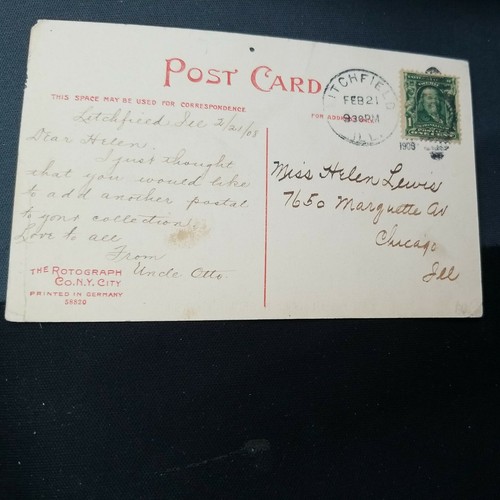 POST CARD
THIS SPACE MAY BE USED FOR CORRESPONDENCE.
FOR ADDRESS
Litchfield Ill 2/21/08
Dear Helen,
I just thought
that you would like
to add another postal
to your collection.
Love to all
From
Uncle Otto.
THE ROTOGRAPH
CO. N.Y. CITY
PRINTED IN GERMANY
LITCHFIELD
FEB 21
930PM
ILL.
1908
Miss Helen Lewis
7650 Marquette Av
Chicago
Ill